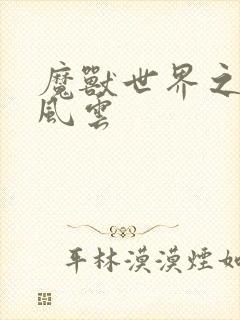 魔獸世界之
風雲
平林漠漠煙如